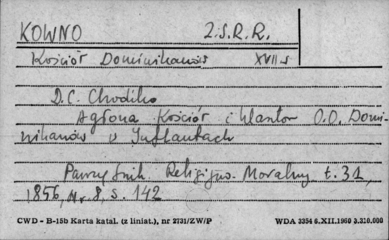 KOWNO Z.S.R.R.
Kościół Dominikanów XVII s
D.C. Chodźko
Agłona Kościół i klasztor O.O. Domi-
nikanów w Inflantach
Pamiętnik Religijno. Moralny t. 31,
1856, Nr. 8, s. 142
CWD - B-15b Karta katal. (z liniat.), nr 2731/ZW/P WDA 3354 6.XII.1960 3.210.000